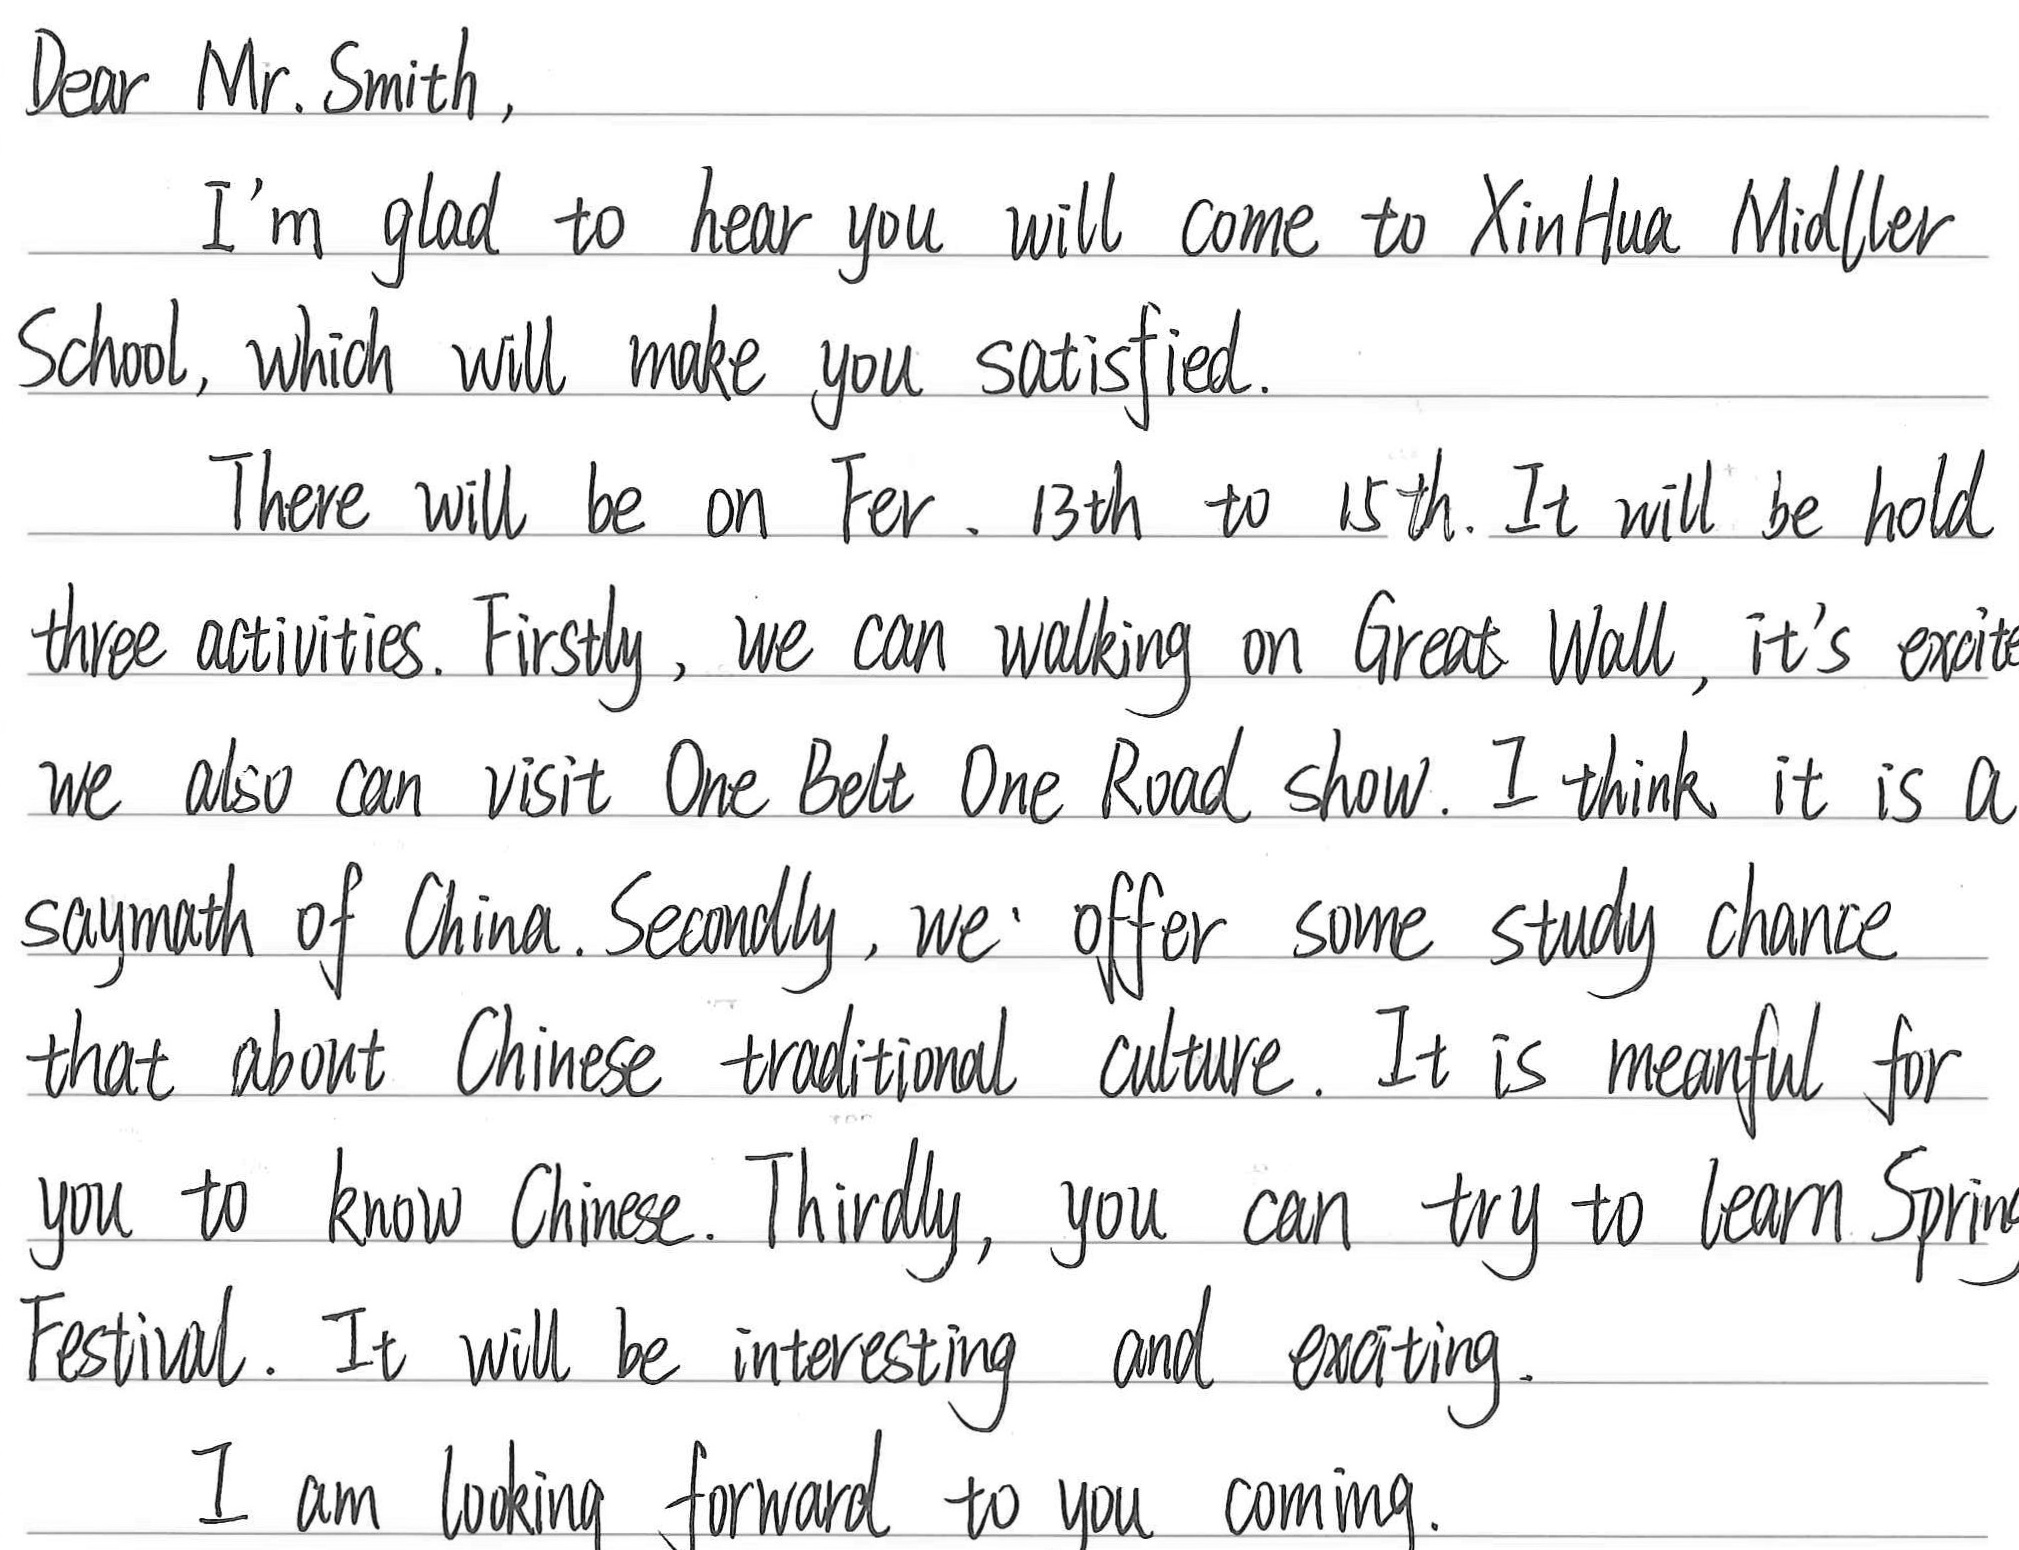 Dear Mr. Smith,
I'm glad to hear you will come to XinHua Midller
School, which will make you satisfied.
There will be on Fer. 13th to 15th. It will be hold
three activities. Firstly, we can walking on Great Wall, it's excite
we also can visit One Belt One Road show. I think it is a
saymath of China. Secondly, we offer some study chance
that about Chinese traditional culture. It is meanful for
you to know Chinese. Thirdly, you can try to learn Spring
Festival. It will be interesting and exciting.
I am looking forward to you coming.